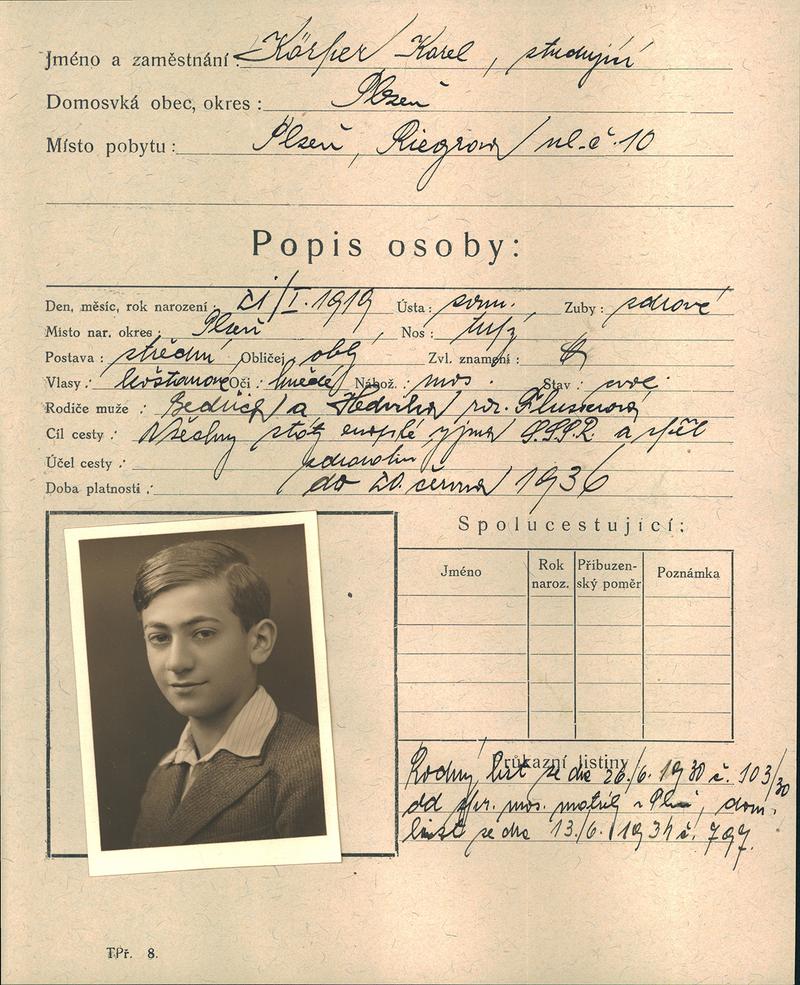 Jméno a zaměstnání: Körper Karel, studující
Domosvká obec, okres: Plzeň
Místo pobytu: Plzeň, Riegrova ul. č. 10
Popis osoby:
Den, měsíc, rok narození: 21/I. 1919 Ústa: Zuby: zdravé
Misto nar. okres: Plzeň Nos:
Postava: střední Obličej oblý Zvl. znamení:
Vlasy: kaštanové Oči: hnědé Nábož.: mos. Stav: svob.
Rodiče muže: Bedřich a Hedvika roz.
Cíl cesty: Všechny státy evropské vyjma S.S.S.R. a
Účel cesty:
Doba platnosti: do 20. června 1936
Spolucestující:
Jméno Rok naroz. Příbuzen-ský poměr Poznámka
Průkazní listiny
Rodný list ze dne 26./6. 1930 č. 103/30
od mos. matrik v Plzni, dom.
list ze dne 13./6. 1934 č. 797.
TPř. 8.